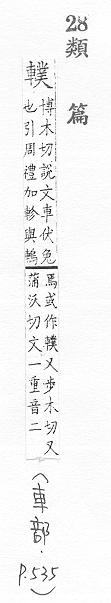 28類篇
轐
博木切說文車伏兔
也引周禮加軫與轐
焉或作轐又步木切又
蒲沃切文一重音二
(車部.
p.535)